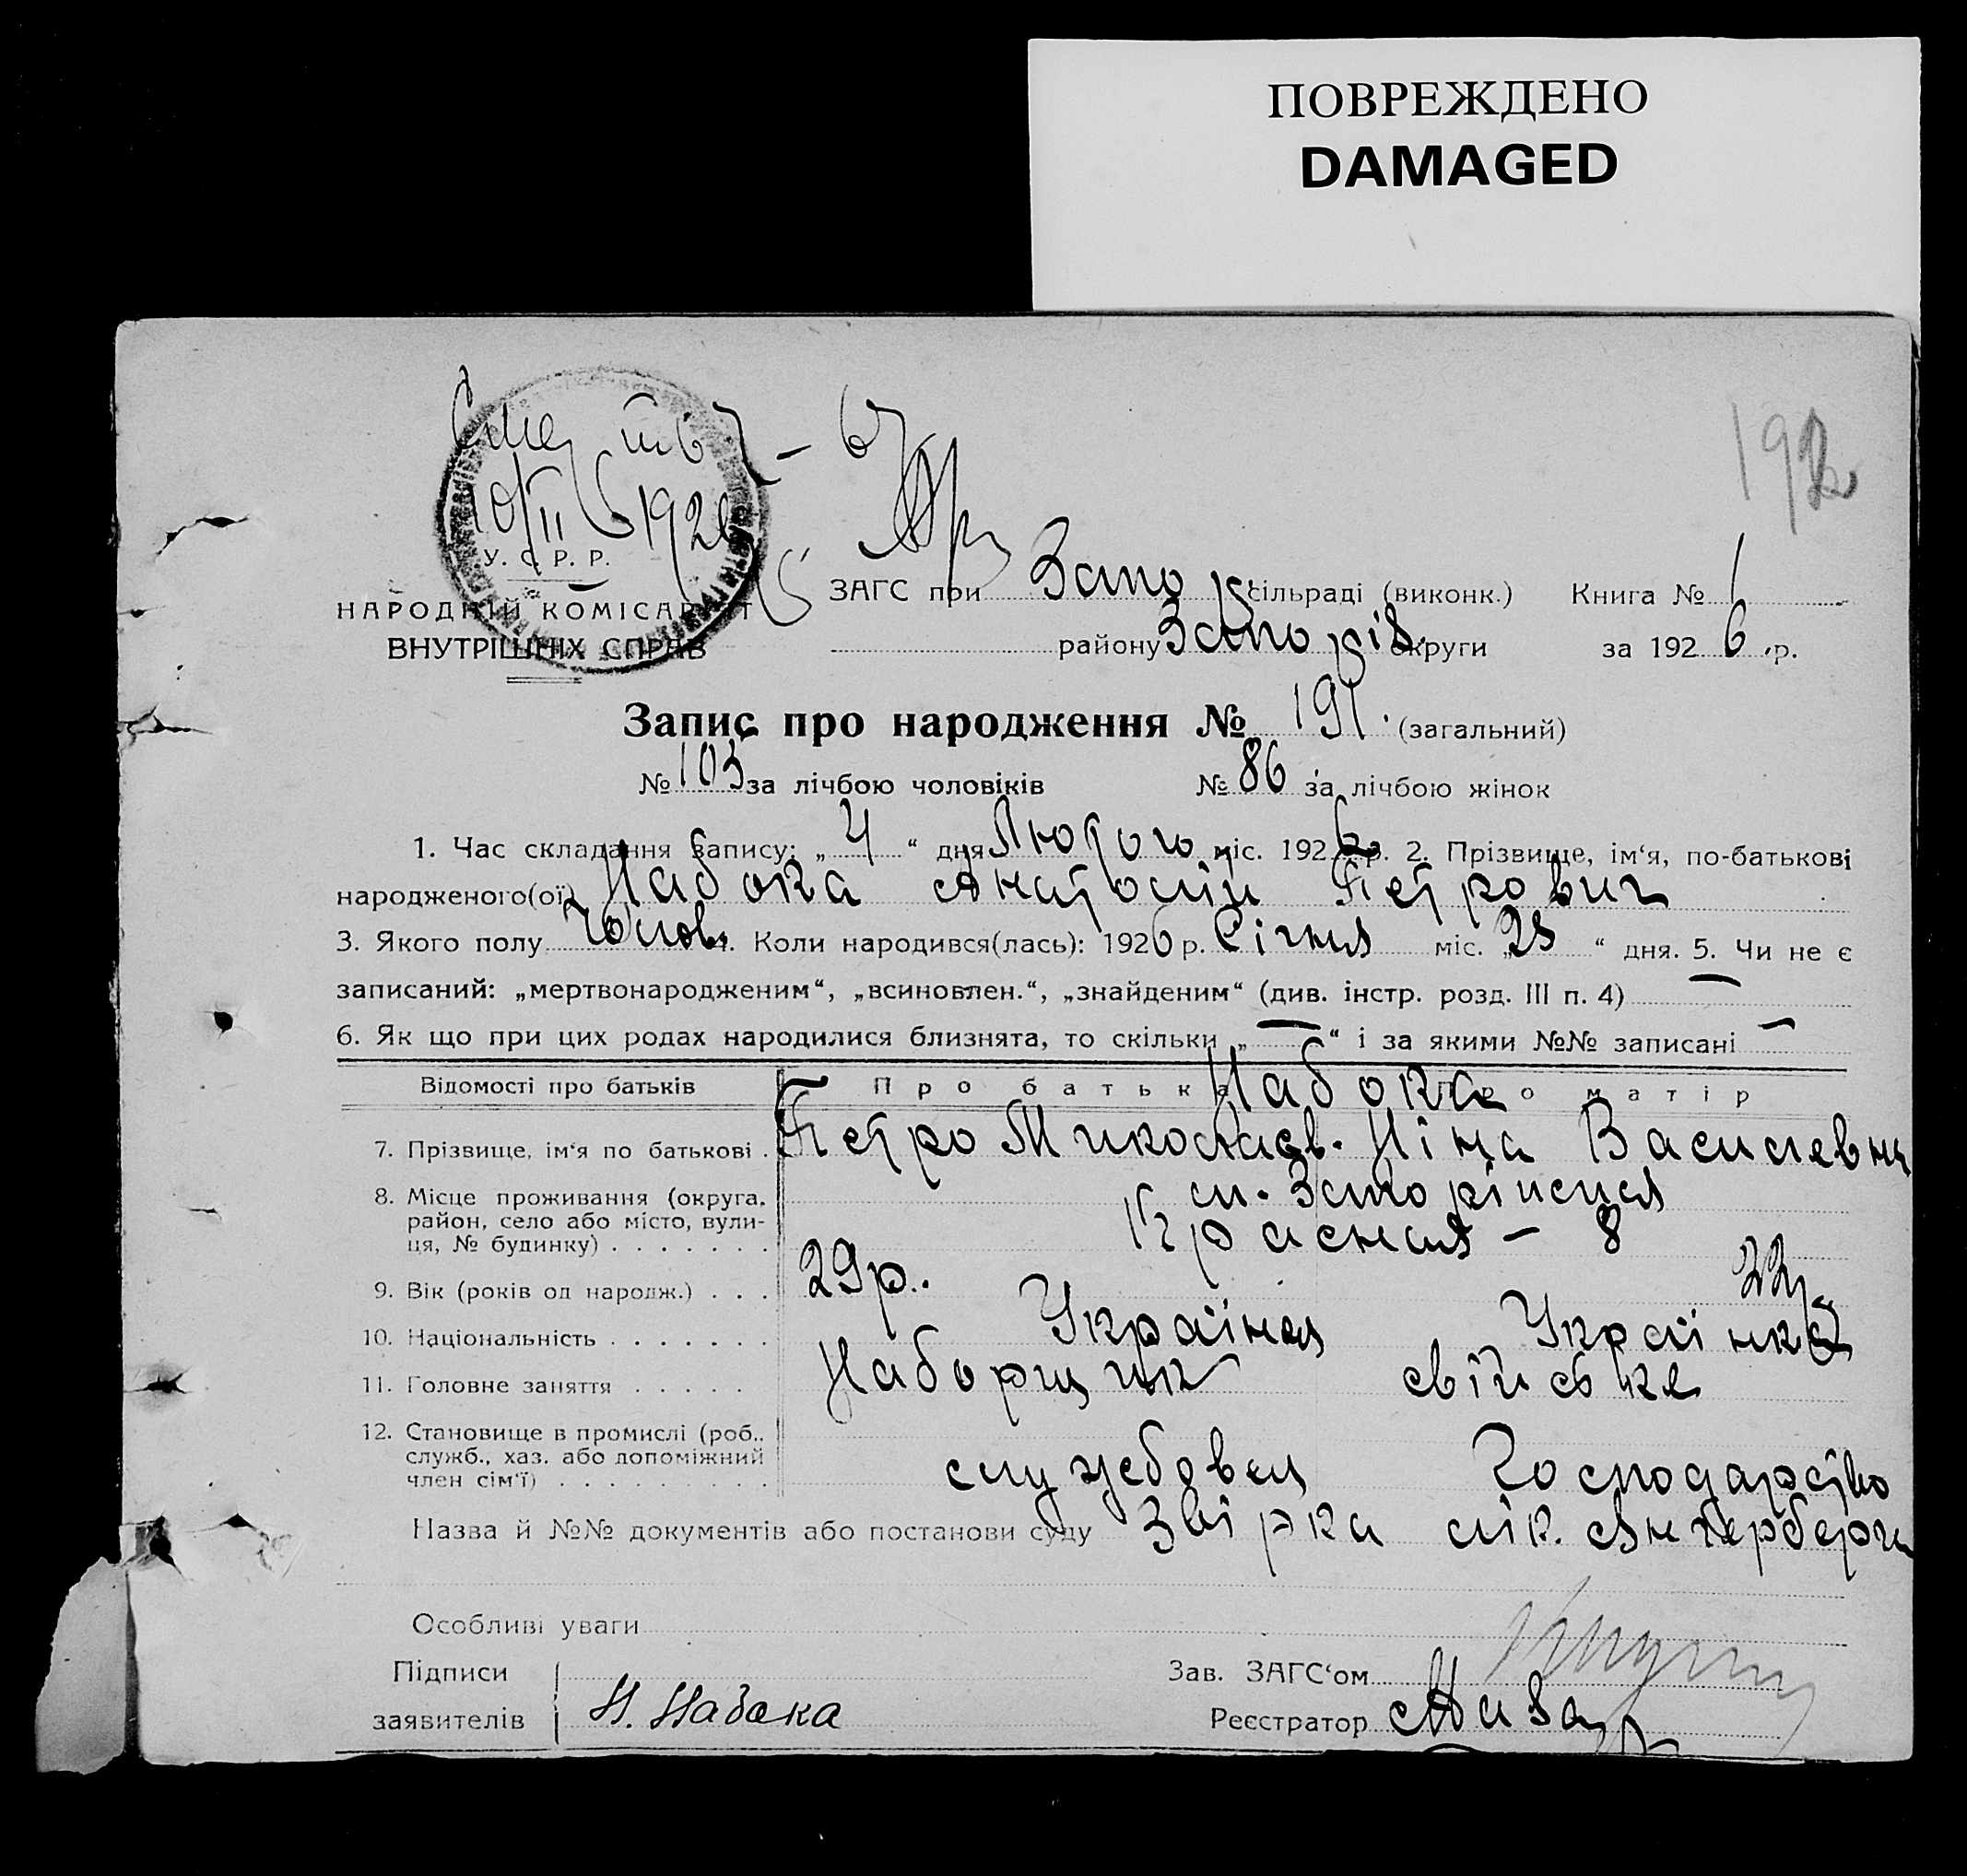 ПОВРЕЖДЕНО
DAMAGED
192
Смерть – 67
10/II 1926
У. С. Р. Р.
НАРОДНІЙ КОМІСАРІЯТ
ВНУТРІШНІХ СПРАВ
ЗАГС при Запор сільраді (виконк.) Книга № 1
району Запоріз. округи за 1926 р.
Запис про народження № 191. (загальний)
№ 105 за лічбою чоловіків № 86 за лічбою жінок
1. Час складання запису: „ 4 “ дня Лютого міс. 1926 р. 2. Прізвище, ім‘я, по-батькові
народженого(ої) Набока Анатолій Петрович
3. Якого полу Чолов. 4. Коли народився(лась): 1926 р. Січня міс. „ 28 “ дня. 5. Чи не є
записаний: „мертвонародженим“, „всиновлен.“, „знайденим“ (див. інстр. розд. III п. 4) —
6. Як що при цих родах народилися близнята, то скільки „ — “ і за якими №№ записані —
Відомості про батьків Про батька Про матір
Набока
7. Прізвище, ім‘я по батькові . Петро Миколаєв. Ніна Василевна
8. Місце проживання (округа, район, село або місто, вули-ця, № будинку) . . . . . . . м. Запоріжжя
Красная – 8
9. Вік (років од народж.) . . . 29 р. 22 р.
10. Національність . . . . . . . Українец Українка
11. Головне заняття . . . . . Наборщик свійське
12. Становище в промислі (роб., служб., хаз. або допоміжний член сім‘ї) . . . . . . . . . службовец Господарство
Назва й №№ документів або постанови суду Звірка лік.
Особливі уваги
Підписи заявителів Н. Набока
Зав. ЗАГС‘ом
Реєстратор